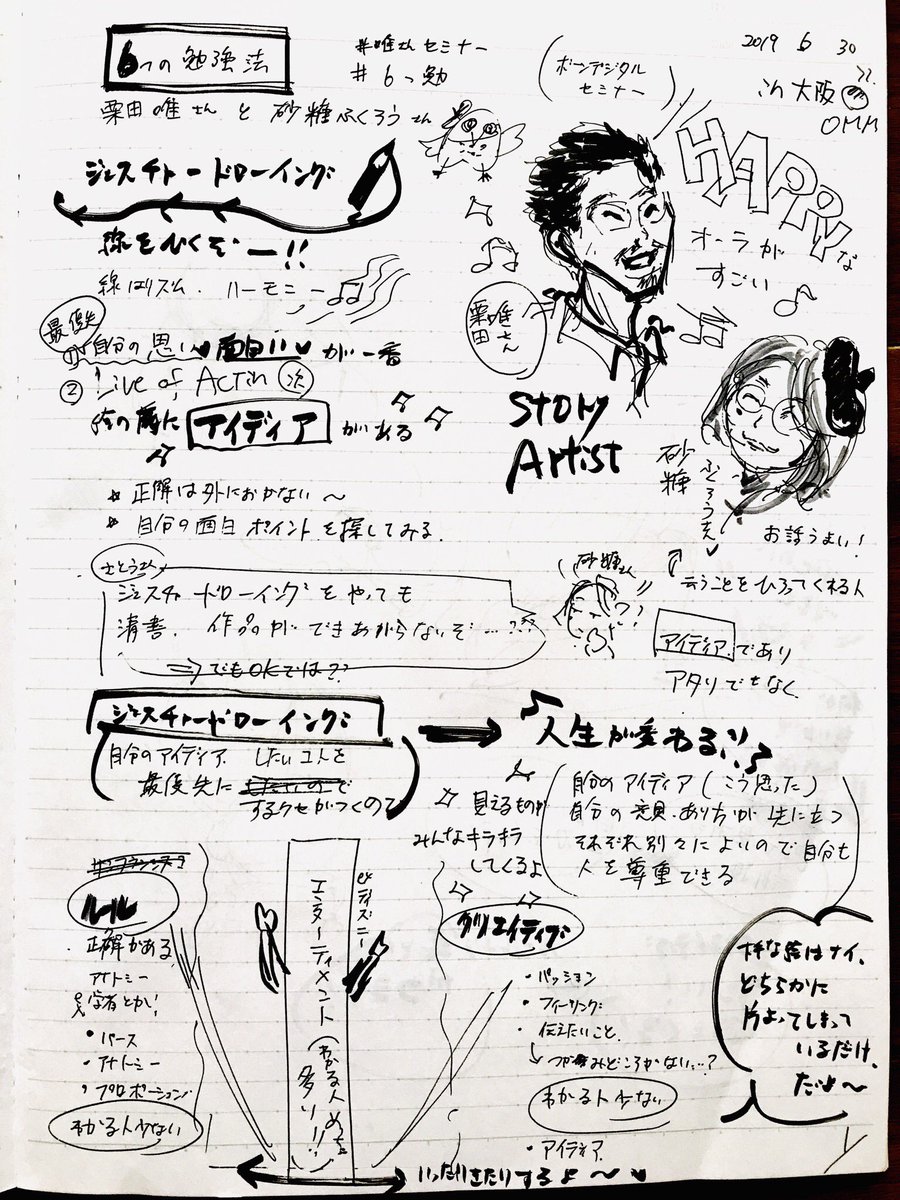 6つの勉強法
#唯さんセミナー
#6つ勉
(ボーンデジタル
セミナー)
2019 6 30
in 大阪
OMM
栗田唯さんと砂糖ふくろうさん
ジェスチャードローイング
線をひくぞー!!
線はリズム.ハーモニー
HAPPYな
オーラが
すごい
栗田唯さん
Story
Artist
最優先
①自分の思い 面白い が一番
② Line of Action 次
絵の前に アイディア がある
正解は外におかない〜
自分の面白ポイントを探してみる.
砂糖ふくろうさん
お話うまい!
云うことをひろってくれる人
さとうさん
ジェスチャードローイングをやっても
清書.作品ができあがらないぞ…??
⇒でもOKでは??
砂糖さん
アイディアであり
アタリでもなく
ジェスチャードローイング
人生が変わる!!
(自分のアイディア したいコトを
最優先に
するクセがつくので)
見えるものが
みんなキラキラ
してくるよ
(自分のアイディア(こう思った)
自分の意見.あり方が先に立つ
それぞれ別々によいので自分も
人を尊重できる)
ルール
正解がある
アナトミー
学者とか!
・パース
・アナトミー
・プロポーション
わかる人少ない
エンターティメント(わかる人めっちゃ多い!!)
ex ディズニー
クリエイティブ
・パッション
・フィーリング
・伝えたいこと.
↳つかみどころがない…?
わかる人少ない
・アイディア
下手な絵はナイ.
どちらかに
片よってしまって
いるだけ.
だよ〜
いったりきたりするよ〜